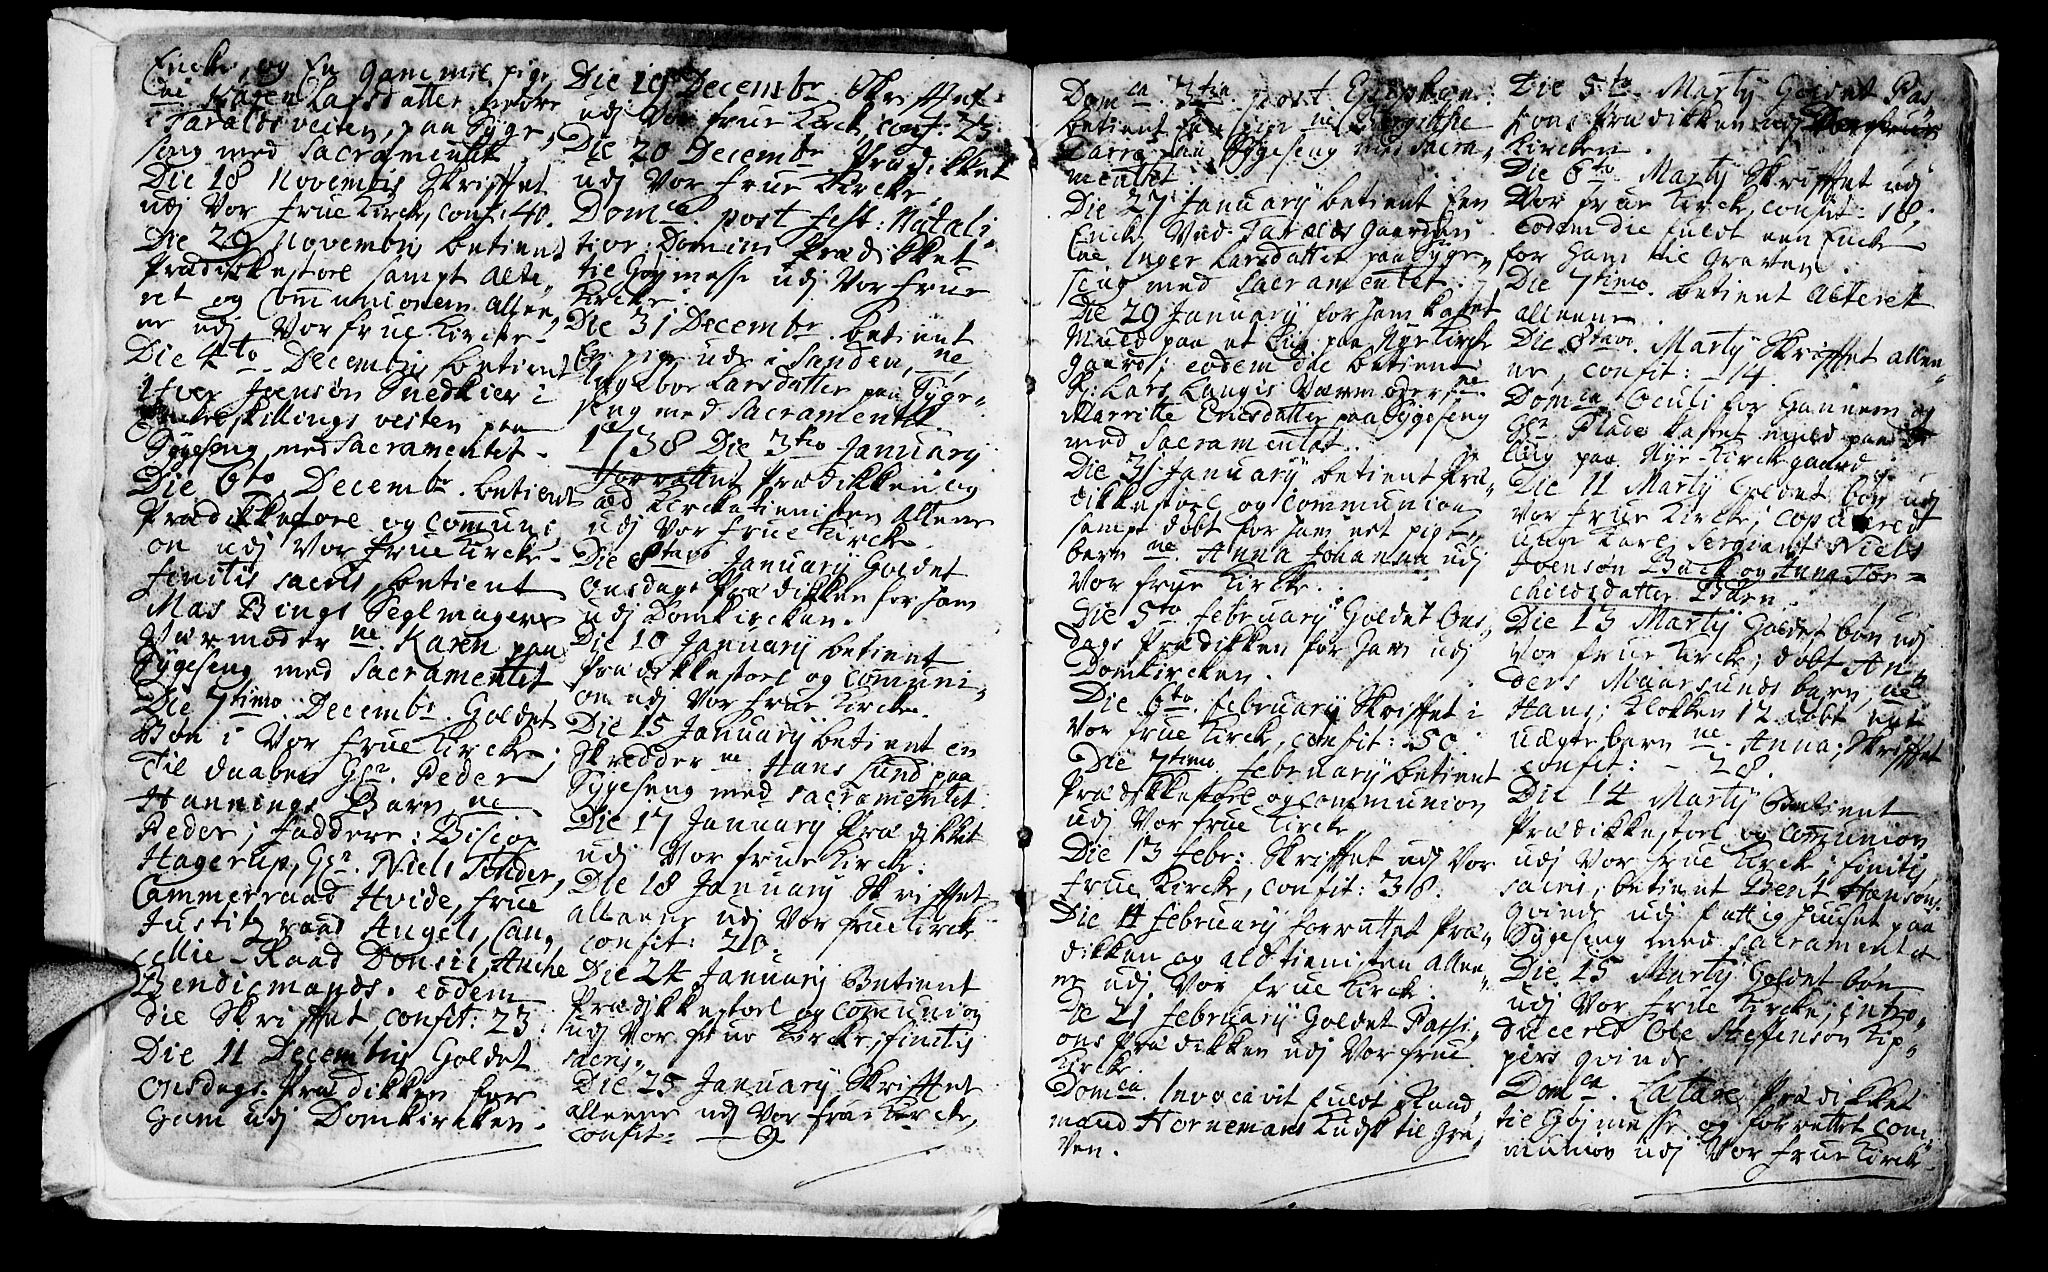 Encke, og En gammel pige
ne Karen Larsdatter nedre
i Taralds veiten, paa Syge,
seng med Sacramentet.
Die 18 Novembris Skrifftet
udj Vor frue Kirck, conf: 40.
Die 29 Novembris betient
Prædikkestoel sampt Alte,
ret og Communionen alleen,
ne udj Vor frue Kircke.
Die 4to Decembris betient
Iver Jensøn Snedkier i
skillings veiten paa
Sygeseng med Sacramentet.
Die 6to Decembr. betient
Prædikkestoel og Comuni
on udj Vor frue Kircke.
finitis sacris, betient
Mas Bings Seglmagers
Værmoder ne Karen paa
Sygeseng med Sacramentet
Die 7timo Decembr. Holdet
Bøn i Vor frue Kircke;
Til daaben Hr. Peder
Hannings Barn ne
Peder; faddere: Biscop
Hagerup, Hr. Niels Tønder,
Cammerraad Hvide, frue
Justitz raad Angels, Can,
cellie-Raad Donsis, Anche
Bendicmands. eodem
die Skrifftet confit: 23:
Die 11 Decembris Holdet
Onsdags Prædikken for
ham udj Domkircken.
Die 19 Decembr Skrifftet
udj Vor frue Kirck, conf: 23.
Die 20 Decembr Prædikket
udj Vor frue Kircke.
Domca post fest: Natali,
tior: Domini Prædikket
til Høymesse udj Vor frue
Kircke.
Die 31 Decembr. betient
En pige ude i Sanden, ne
Ingebor Larsdatter paa Syge,
seng med Sacramentet.
1738 Die 3tio January
Forrettet Prædikken og
ald Kircketienisten alleene
udj Vor frue Kircke.
Die 8tavo January Holdet
Onsdags Prædikken for ham
udj Domkircken.
Die 10 January betient
Prædikkestoel og Comuni,
on udj Vor frue Kircke.
Die 15 January betient en
Skredder ne Hans Lund paa
Sygeseng med Sacramentet.
Die 17 January Prædikket
udj Vor frue Kircke.
Die 18 January Skrifftet
alleene udj Vor frue Kirck
confit: 20.
Die 24 January Betient
Prædikkestoel og Comunion
udj Vor frue Kircke, finitis
sacris
Die 25 January Skrifftet
alleene udj Vor frue Kircke,
confit: — 9
Domca 3tia post Epiphan:
betient
paa Sygeseng med Sacra,
mentet
Die 27 January betient Een
Encke Ved Taralds gaarden
ne Inger Larsdatter paa Syge,
seng med Sacramentet.
Die 29 January for ham kastet
Muld paa et Liig paa Nye Kircke
gaard; eodem die betient
Lars Langes Værmoder ne
Marritte Ericsdatter paa Sygeseng
med Sacramentet.
Die 31 January betient Præ,
dikkestoel og Communion
sampt døbt for ham et pige,
barn ne Anna Johanna udj
Vor frue Kircke.
Die 5to February Holdet Ons,
dags Prædikken for ham udj
Domkircken.
Die 6to February Skrifftet i
Vor frue Kirck, confit: 50.
Die 7timo February betient
Prædikkestoel og Communion
udj Vor frue Kircke
Die 13 Febr: Skrifftet udj Vor
frue Kirck, confit: 38.
Die 14 February forrettet Præ,
dikken og ald tienisten alleen,
ne udj Vor frue Kircke.
Die 21 February Holdet Passi,
ons Prædikken udj Vor frue
Kircke.
Domca Invocavit fuldt Raad
mand Hornemans Kudsk til Gra,
ven.
Die 5to Marty Holdet Pas,
sions Prædikken udj
Kircken.
Die 6to Marty Skrifftet udj
Vor frue Kirck, confit: 18,
eodem die fuldt een Encke
for ham til graven.
Die 7timo betient Alteret
alleene.
Die 8tavo Marty Skrifftet alleen,
ne, confit: — 14.
Domca Oculi for Hannem og
Hr Place kastet muld paa
Liig paa Nye Kirckegaard.
Die 11 Marty Holdet bøn udj
Vor frue Kircke; Copulered
unge Karl Sergiant Niels
Joenson Back og Anna Tor=
childsdatter Bken.
Die 13 Marty Holdet bøn udj
Vor frue Kircke; døbt An,
ders Maarsunds barn, ne
Hans; Klokken 12 døbt eet
Uægte barn ne Anna; Skrifftet
confit: — 28.
Die 14 Marty Betient
Prædikkestoel og Comunion
udj Vor frue Kircke; finitis
sacris, betient Bent Hansøns
qvinde udj fattighuuset paa
Sygeseng med Sacramentet
Die 15 Marty Holdet bøn
udj Vor frue Kircke; intro,
ducered Ole Steffenson Kip,
pers qvinde.
Domca Lætare Prædikket
til Høymesse og forrettet Com,
munion udj Vor frue Kirck.